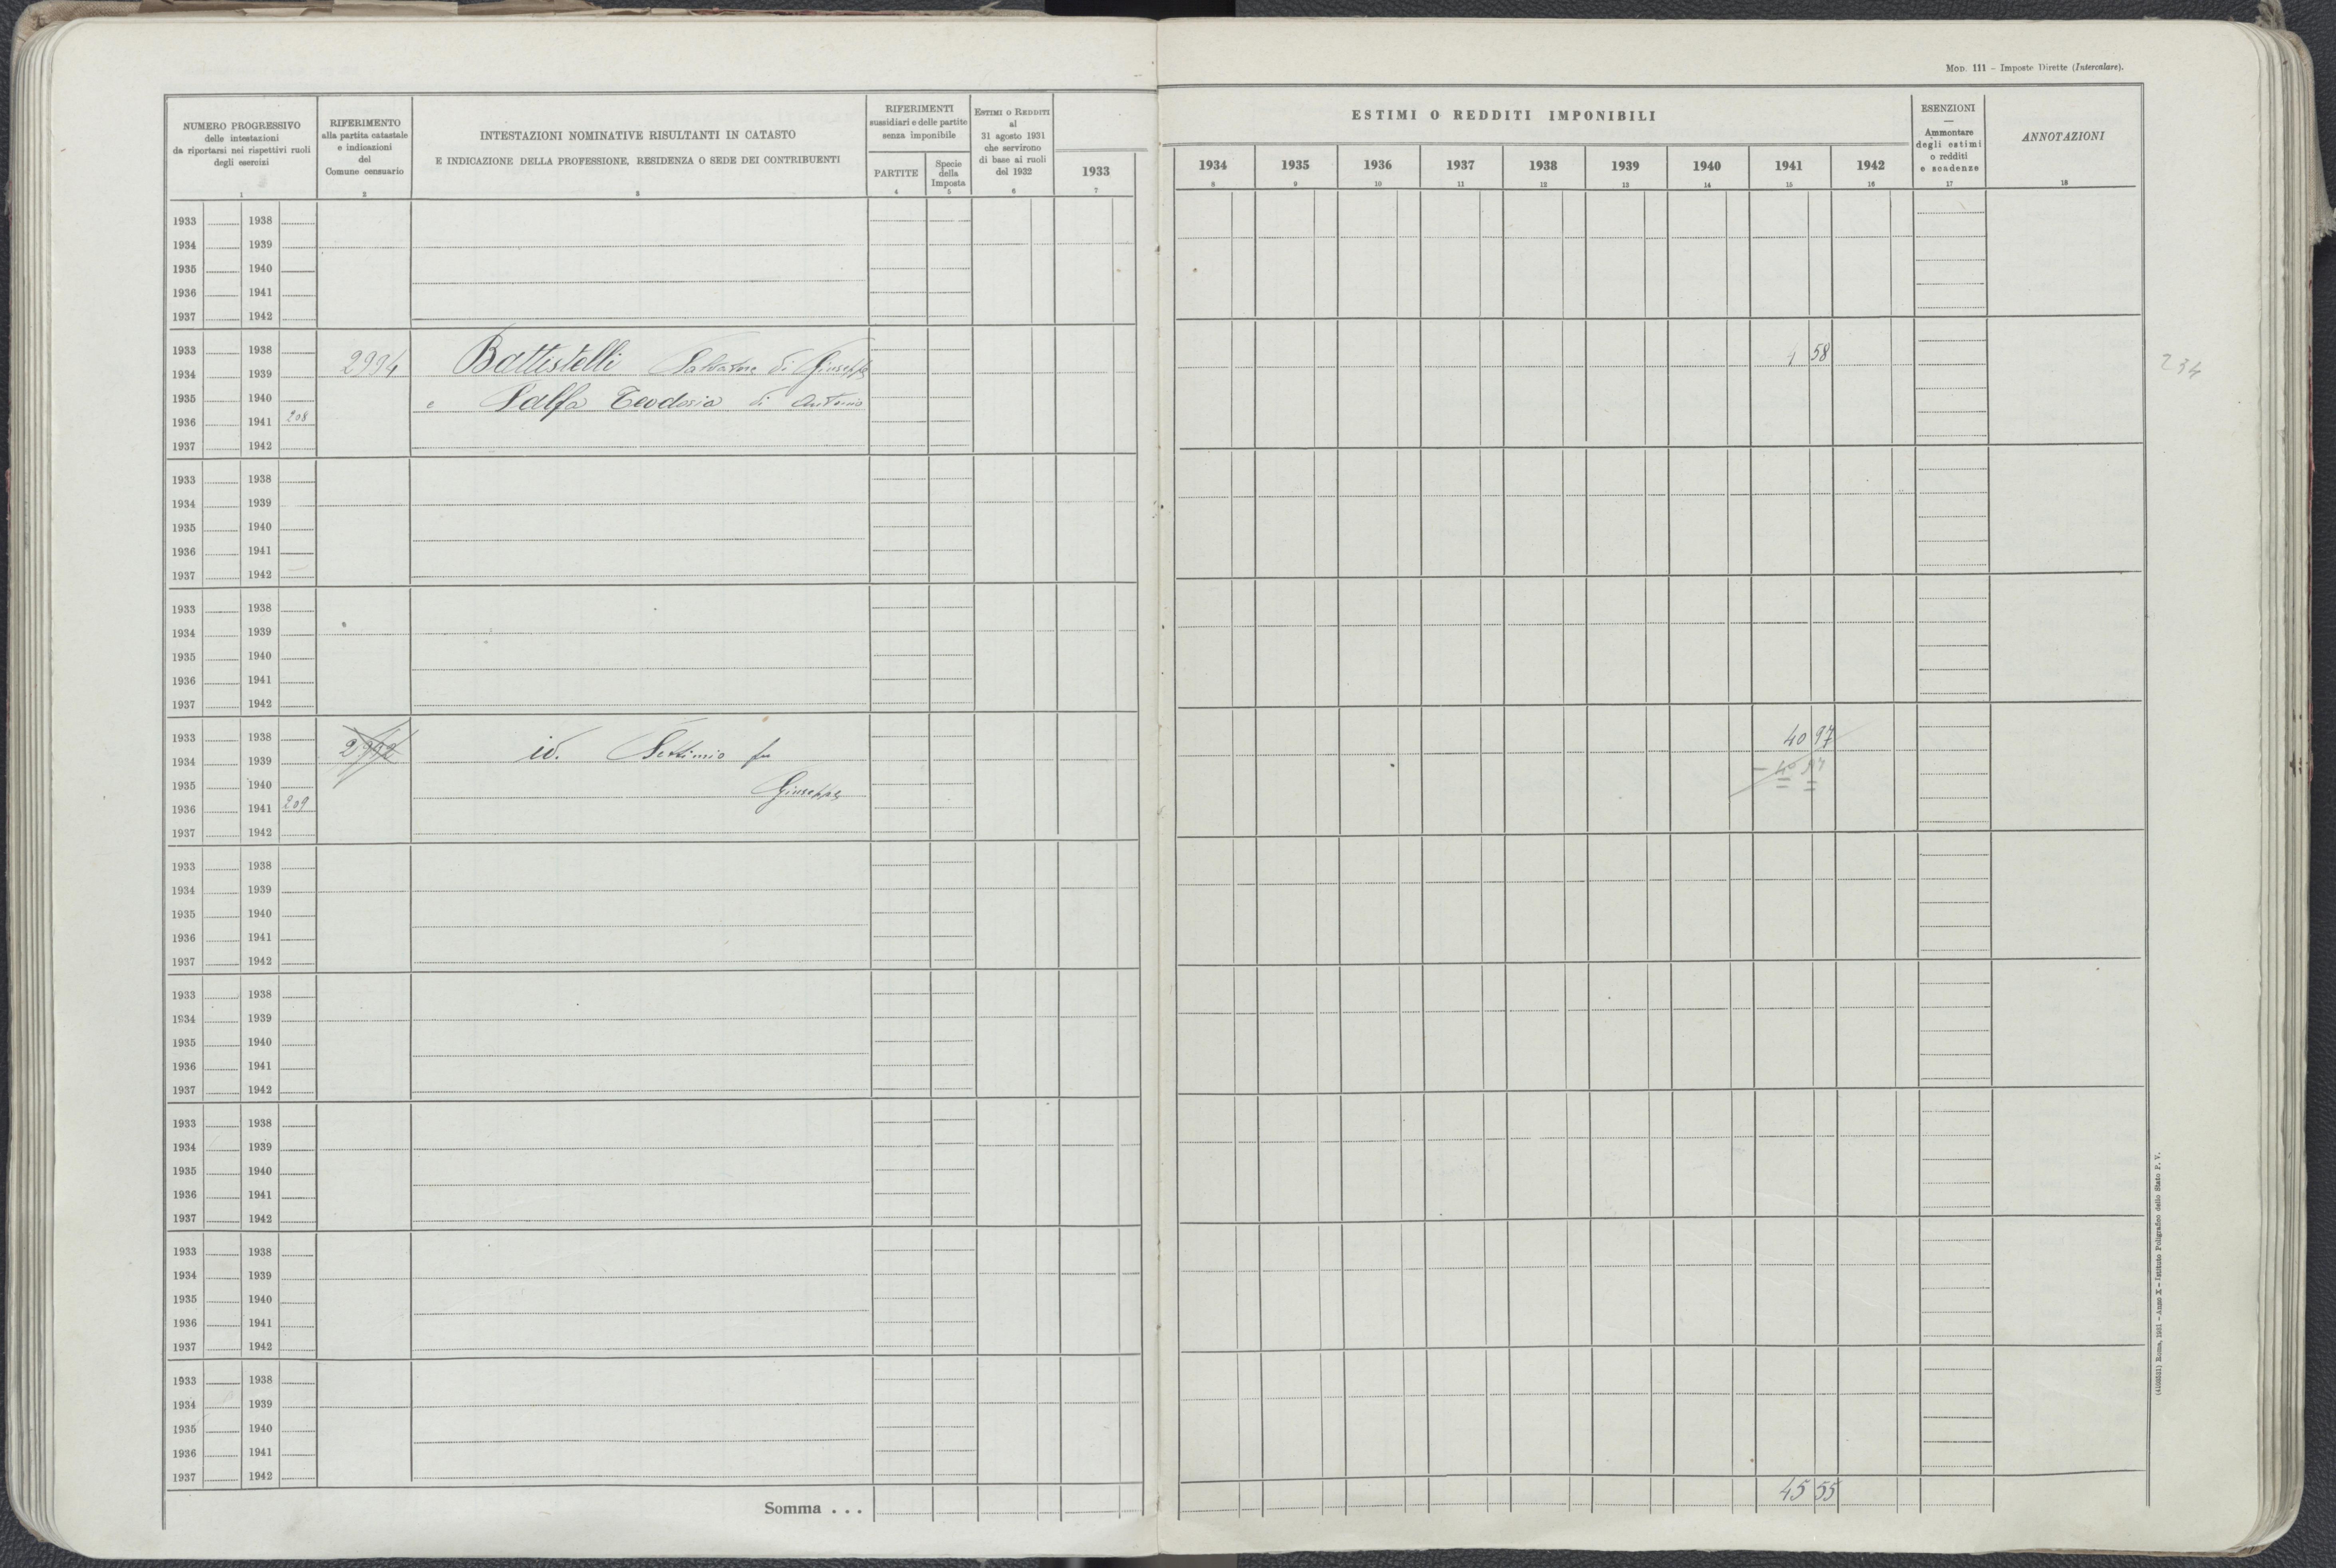 Mod. 111 – Imposte Dirette (Intercalare).
NUMERO PROGRESSIVO
delle intestazioni
da riportarsi nei rispettivi ruoli
degli esercizi
1
RIFERIMENTO
alla partita catastale
e indicazioni
del
Comune censuario
2
INTESTAZIONI NOMINATIVE RISULTANTI IN CATASTO
E INDICAZIONE DELLA PROFESSIONE, RESIDENZA O SEDE DEI CONTRIBUENTI
3
RIFERIMENTI
sussidiari e delle partite
senza imponibile
PARTITE
4
Specie
della
Imposta
5
ESTIMI O REDDITI
al
31 agosto 1931
che servirono
di base ai ruoli
del 1932
6
1933
7
ESTIMI O REDDITI IMPONIBILI
1934 1935 1936 1937 1938 1939 1940 1941 1942
8 9 10 11 12 13 14 15 16
ESENZIONI
—
Ammontare
degli estimi
o redditi
e scadenze
17
ANNOTAZIONI
18
1933 1938
1934 1939
1935 1940
1936 1941
1937 1942
1933 1938
1934 1939 2994 Battistelli Salvatore di Giuseppe 4 58 234
1935 1940 e Salfa Teodosia di Antonio
1936 1941 208
1937 1942
1933 1938
1934 1939
1935 1940
1936 1941
1937 1942
1933 1938
1934 1939
1935 1940
1936 1941
1937 1942
1933 1938 40 97
1934 1939 id. Settimio fu – 40 97
1935 1940 Giuseppe
1936 1941 209
1937 1942
1933 1938
1934 1939
1935 1940
1936 1941
1937 1942
1933 1938
1934 1939
1935 1940
1936 1941
1937 1942
1933 1938
1934 1939
1935 1940
1936 1941
1937 1942
1933 1938
1934 1939
1935 1940
1936 1941
1937 1942
1933 1938
1934 1939
1935 1940
1936 1941
1937 1942
Somma . . . 45 55
Roma, 1931 – Anno X – Istituto Poligrafico dello Stato P. V.